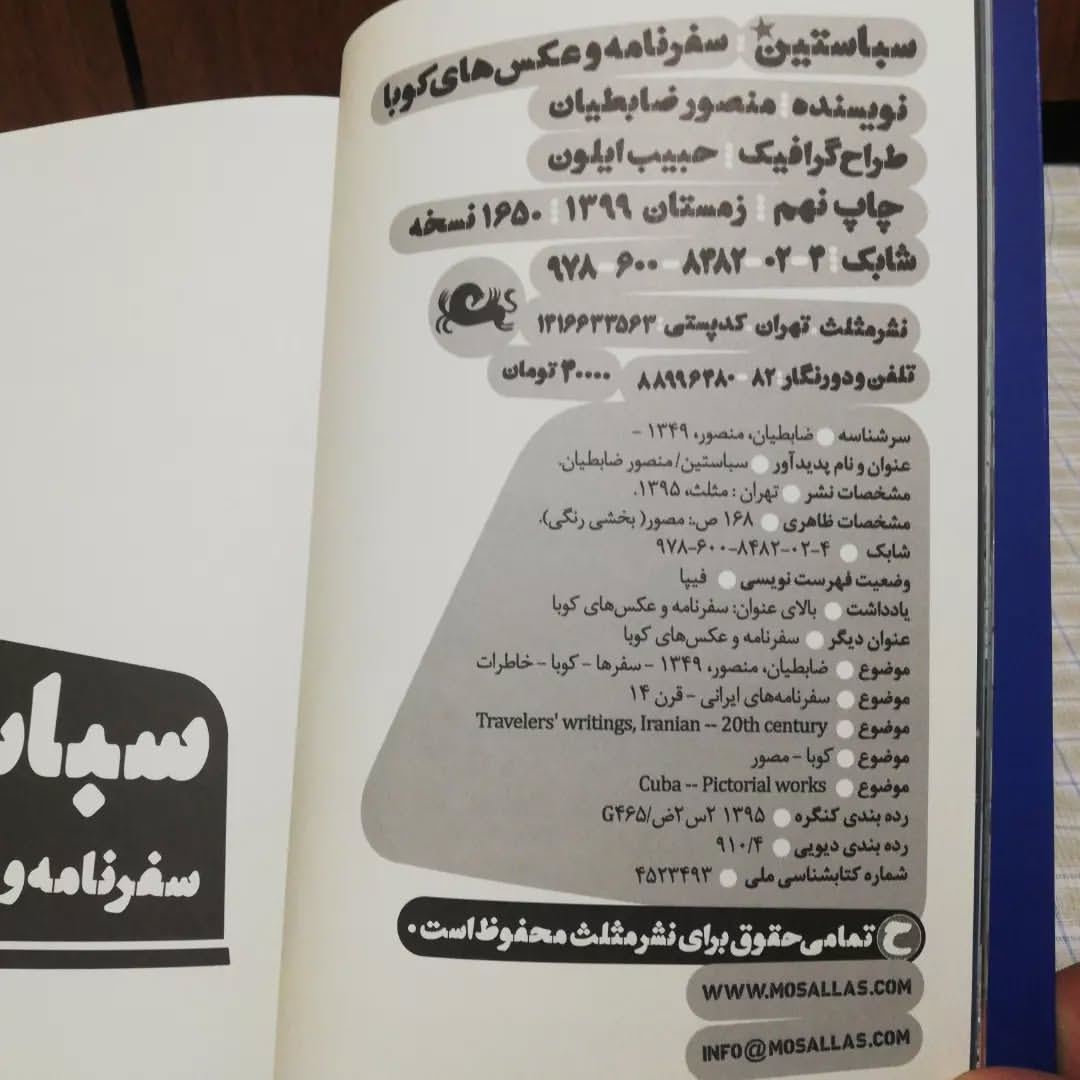 سباستین سفرنامه و عکس‌های کوبا
نویسنده منصور ضابطیان
طراح گرافیک حبیب ایلون
چاپ نهم زمستان ۱۳۹۹ ۱۶۵۰ نسخه
شابک ۴-۰۲-۸۴۸۲-۶۰۰-۹۷۸
نشر مثلث تهران کدپستی ۱۴۱۶۶۳۳۵۶۳
تلفن و دورنگار ۸۲-۸۸۹۹۶۴۸۰ ۴۰۰۰۰ تومان
سرشناسه ضابطیان، منصور، ۱۳۴۹ -
عنوان و نام پدیدآور سباستین/ منصور ضابطیان.
مشخصات نشر تهران : مثلث، ۱۳۹۵.
مشخصات ظاهری ۱۶۸ ص.: مصور( بخشی رنگی).
شابک ۹۷۸-۶۰۰-۸۴۸۲-۰۲-۴
وضعیت فهرست نویسی فیپا
یادداشت بالای عنوان: سفرنامه و عکس‌های کوبا
عنوان دیگر سفرنامه و عکس‌های کوبا
موضوع ضابطیان، منصور، ۱۳۴۹ - سفرها - کوبا - خاطرات
موضوع سفرنامه‌های ایرانی - قرن ۱۴
موضوع Travelers' writings, Iranian -- 20th century
موضوع کوبا - مصور
موضوع Cuba -- Pictorial works
رده بندی کنگره ۱۳۹۵ ۲س۲ض/G۴۶۵
رده بندی دیویی ۹۱۰/۴
شماره کتابشناسی ملی ۴۵۲۳۴۹۳
ح تمامی حقوق برای نشر مثلث محفوظ است.
WWW.MOSALLAS.COM
INFO@MOSALLAS.COM
سفرنامه و